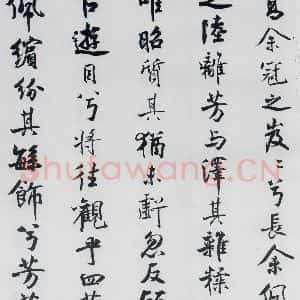 高余冠之岌〻兮長余佩
之陸離芳与澤其雜糅
唯昭質其猶未虧忽反顧
以遊目兮將往觀乎四荒
佩繽紛其繇飾兮芳菲
shufawang.CN